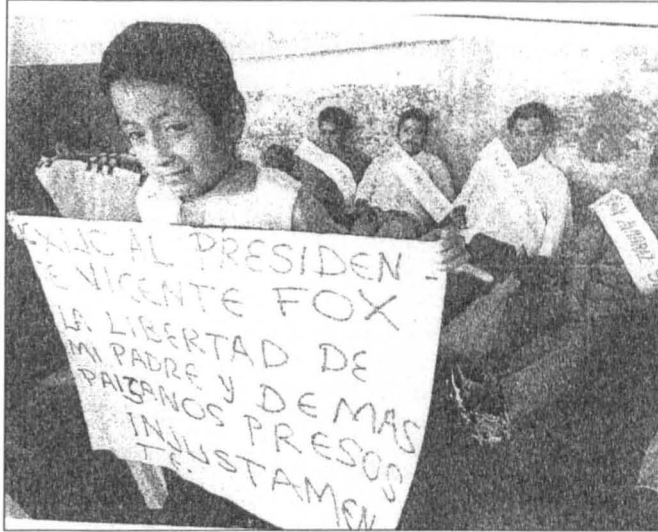 EXIJO AL PRESIDEN-
E VICENTE FOX
LA LIBERTAD DE
MI PADRE Y DEMAS
PAIZANOS PRESOS
INJUSTAMEN
TE.